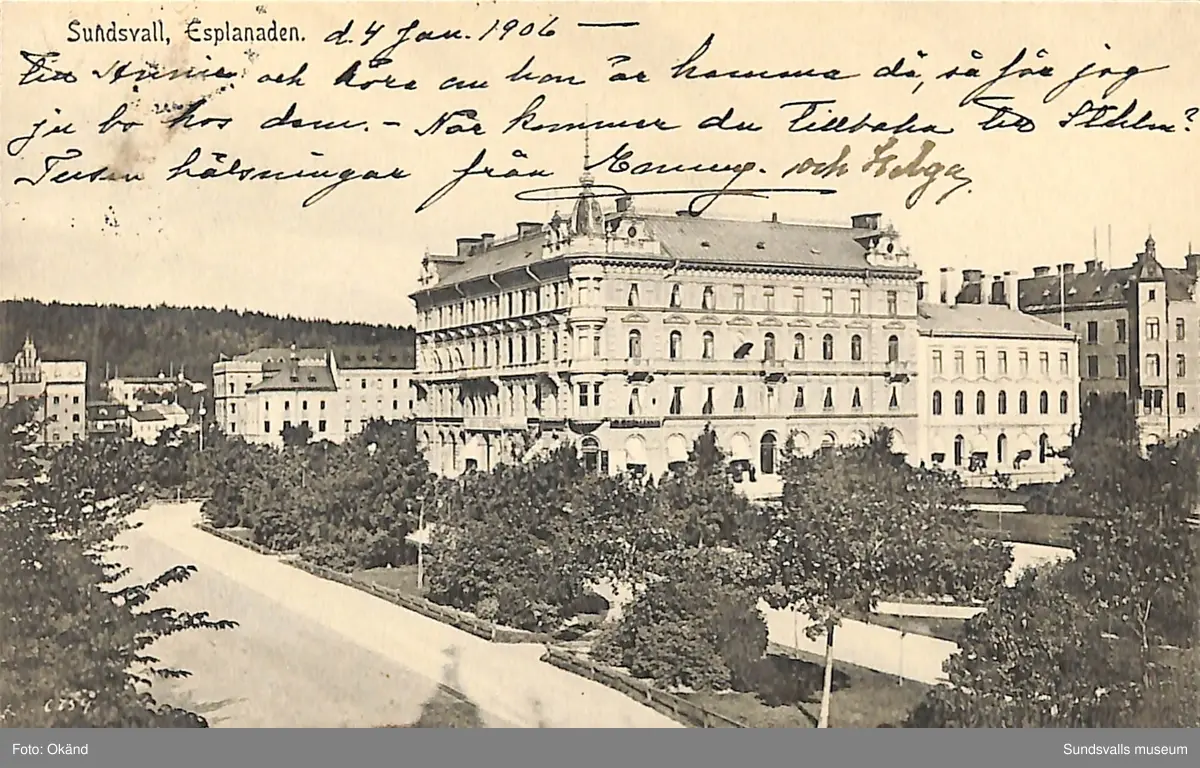 Sundsvall, Esplanaden. d. 4 Jan. 1906 —
Till Annie och höra om hon är hemma då, så får jag
ju bo hos dem. – När kommer du tillbaka till Sthlm?
Tusen hälsningar från Emmy. och Helga.
6754
Foto: Okänd
Sundsvalls museum